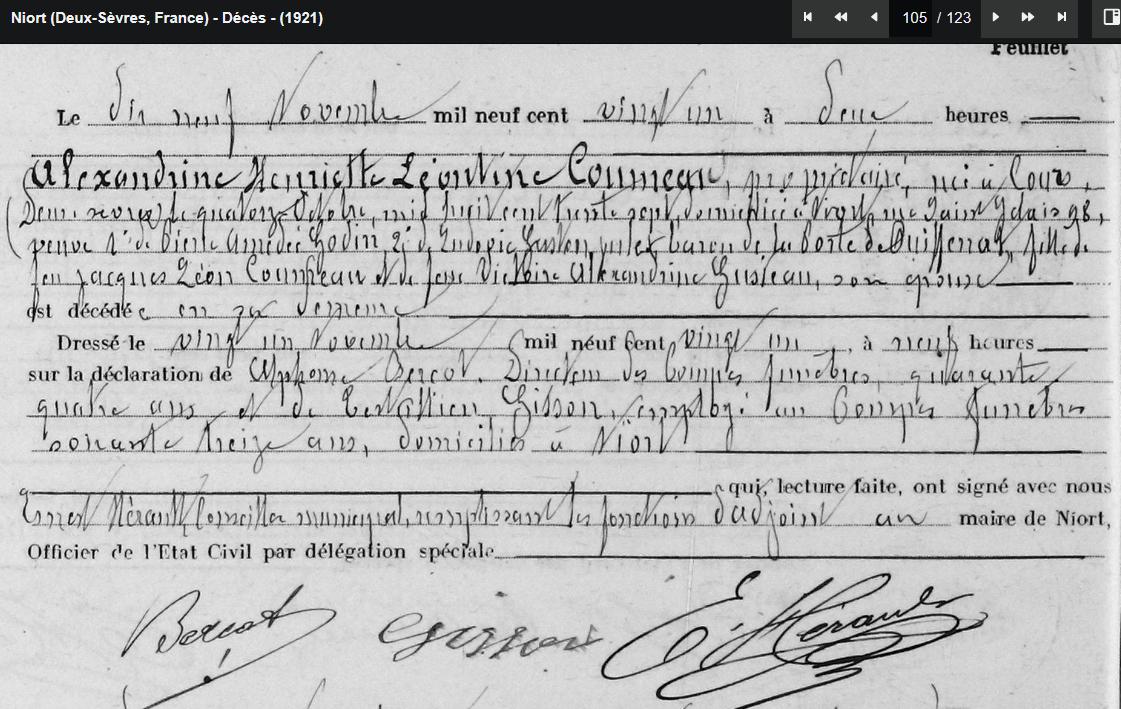 Niort (Deux-Sèvres, France) - Décès - (1921)
105 / 123
Feuillet
Le Dix neuf Novembre mil neuf cent vingt un à Deux heures
Alexandrine Henriette Léontine Coumeau, propriétaire, née à Cours,
Deux-Sèvres, le quatorze Octobre, mil huit cent trente sept, domiciliée à Niort, rue Saint Gelais 98,
veuve 1° de Pierre Amédée Godin 2° de Ludovic Gaston, baron de la Porte de fille de
feu Jacques Léon et de feue Victoire Alexandrine son épouse
est décédée en sa demeure
Dressé le vingt un Novembre mil neuf cent vingt un, à neuf heures
sur la déclaration de Alphonse Bercot, Directeur des Pompes funèbres, quarante
quatre ans et de Gisson, employé aux Pompes funèbres
soixante treize ans, domiciliés à Niort
qui, lecture faite, ont signé avec nous
Ernest Hérault, Conseiller municipal, remplissant les fonctions d'adjoint au maire de Niort,
Officier de l'Etat Civil par délégation spéciale
Bercot Gisson E. Hérault